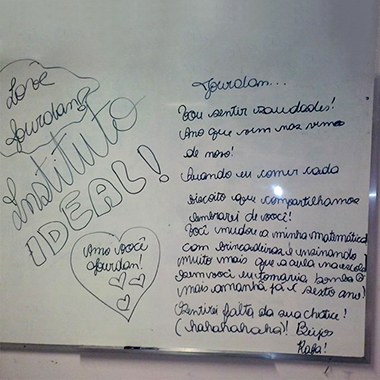 Love
Jourdan
Instituto
IDEAL!
Amo você
Jourdan!
Jourdan...
Vou sentir saudades!
Ano que vem nos vemos
de novo!
Quando eu comer cada
biscoito que compartilhamos
lembrarei de você!
Você mudou a minha matemática
com brincadeiras e ensinando
muito mais que a aula na escola
Sem você eu tomaria bomba e
mais amanhã já é sexto ano!
Sentirei falta da sua chatice!
(hahahahaha)! Beijos
Rafa!